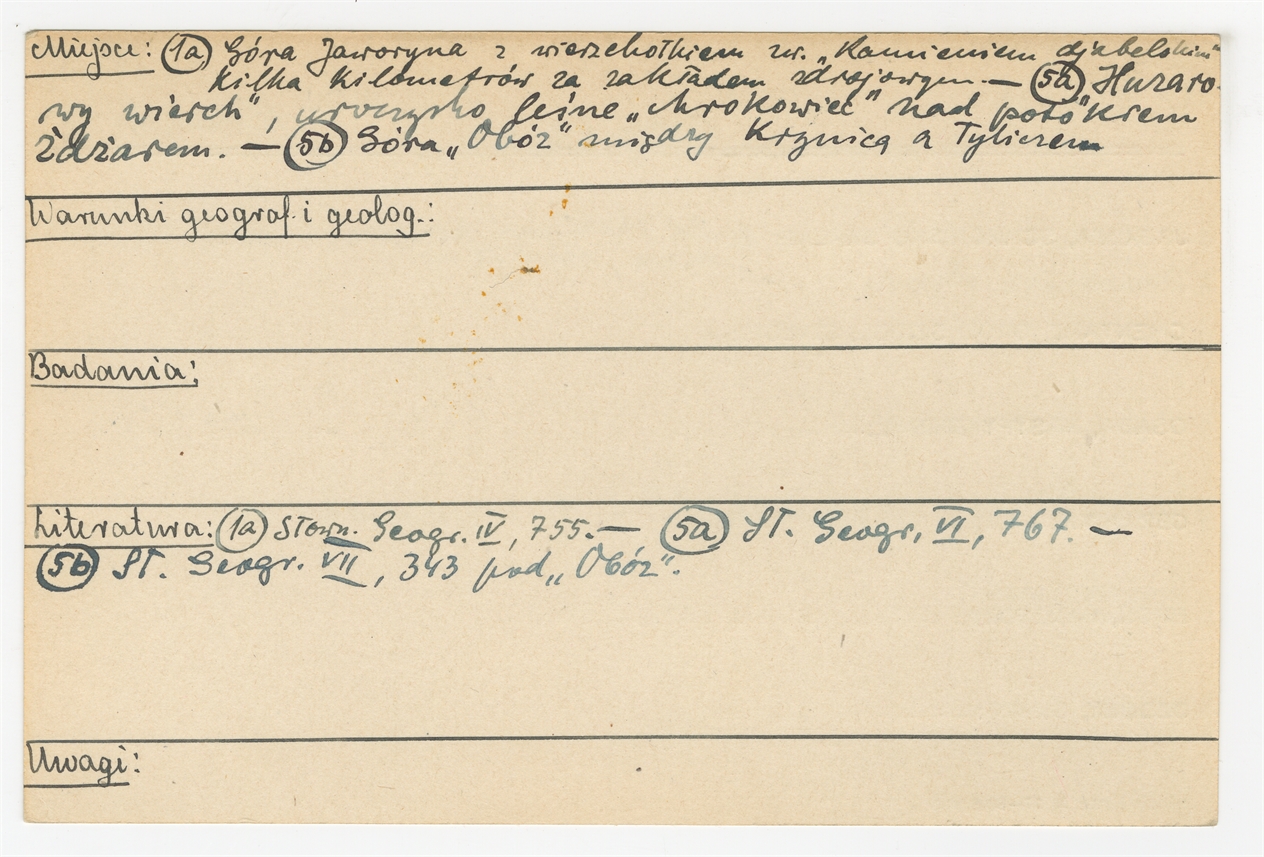 Miejsce: (1a) Góra Jaworyna z wierzchołkiem zw. „Kamieniem djabelskim"
kilka kilometrów za zakładem zdrojowym. — (5a) „Huzaro-
wy wierch", uroczysko leśne „Mrokowiec" nad potokiem
Żdżarem. — (5b) Góra „Obóz" między Krynicą a Tyliczem
Warunki geograf. i geolog.:
Badania:
Literatura: (1a) Słown. Geogr. IV, 755. — (5a) Sł. Geogr. VI, 767. —
(5b) Sł. Geogr. VII, 343 pod „Obóz".
Uwagi: